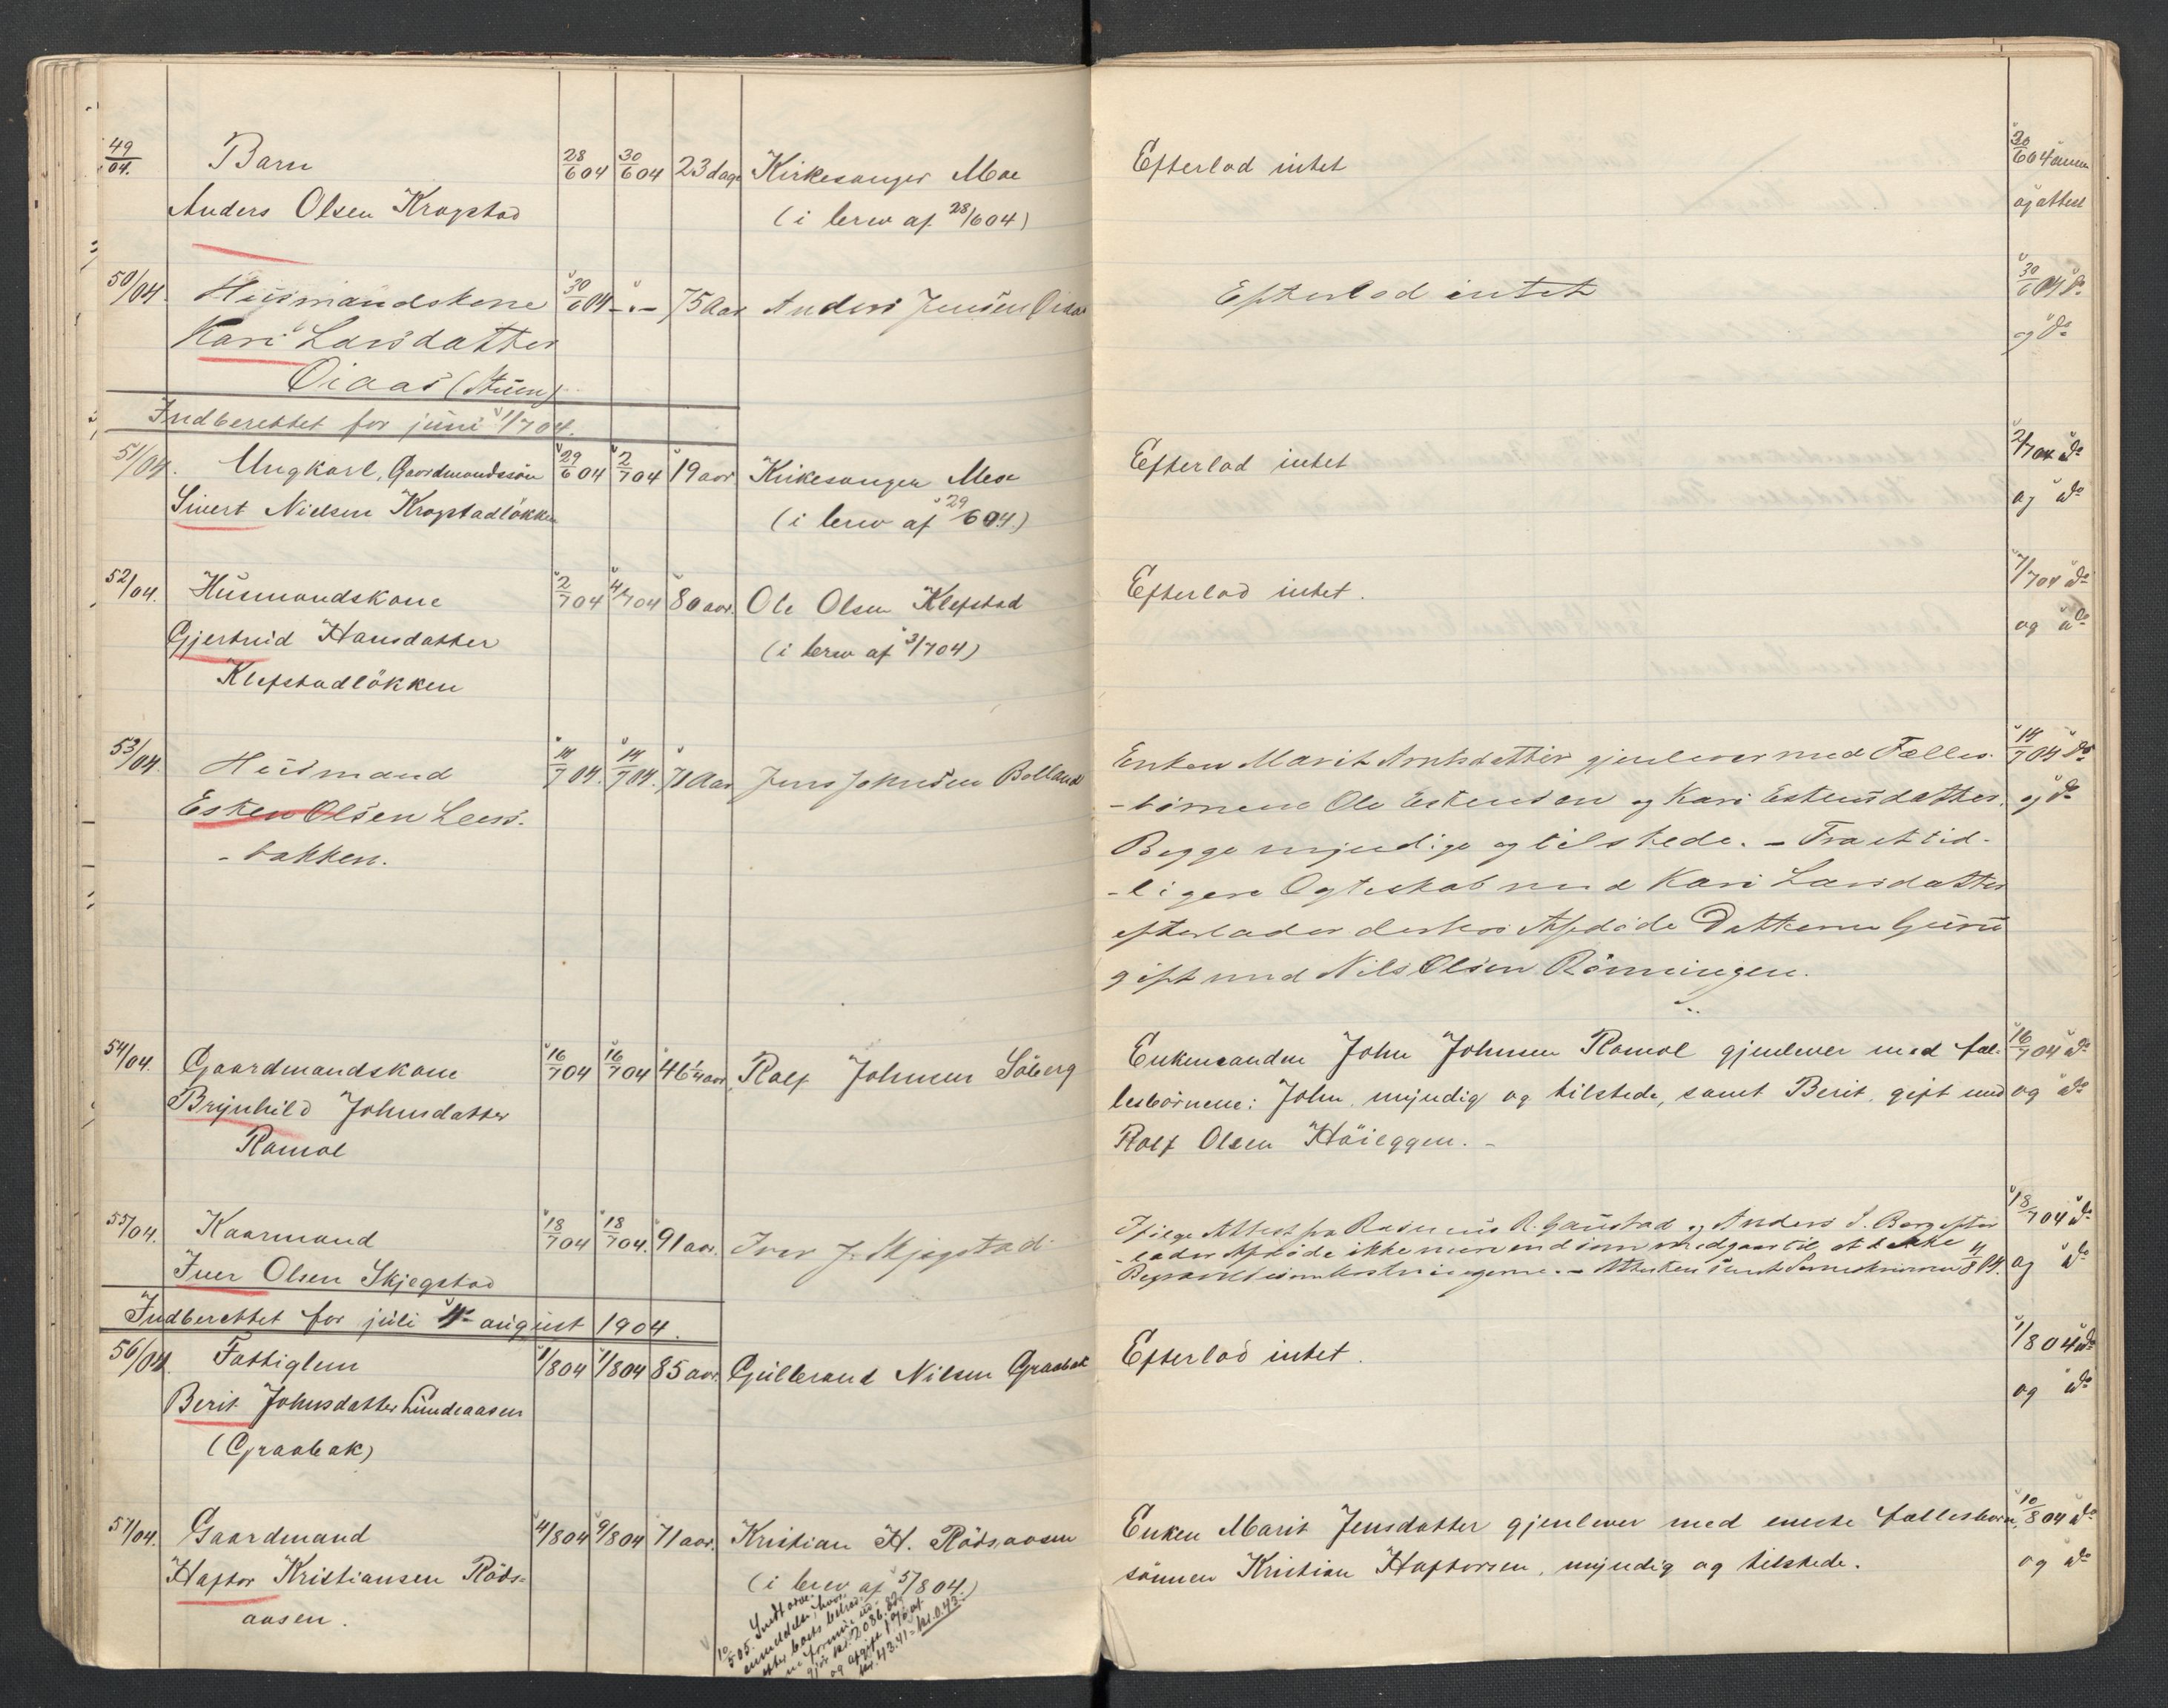 49/04. Barn 28/6 04 30/6 04 23 dage Kirkesanger Moe Efterlod intet 30/6 04 anm
Anders Olsen Krogstad (i brev af 28/6 04) og attest
50/04. Husmandskone 30/6 04 - " - 75 Aar Anders Jensen Efterlod intet 30/6 04 do
Kari Larsdatter og do
Oiaas
Indberettet for juni 1/7 04.
51/04. Ungkarl, Gaardmandssøn 29/6 04 2/7 04 19 aar Kirkesanger Moe Efterlod intet 2/7 04 do
Sivert Nielsen Krogstadløkken (i brev af 29/6 04) og do
52/04. Husmandskone 2/7 04 4/7 04 80 aar. Ole Olsen Klefstad Efterlod intet. 7/7 04 do
Gjertrud Hansdatter (i brev af 3/7 04) og do
Klefstadløkken
53/04. Husmand 14/7 04. 14/7 04. 71 Aar Jens Johnsen Bolland Enken Marit Arntsdatter gjenlever med Fælles- 14/7 04 do
Esten Olsen Leers- -börnene Ole Estensen og Kari Estensdatter. og do
-bakken. Begge myndige og tilstede. - Fra et tid-
-ligere Ægteskab med Kari Larsdatter
efterlader derhos Afdøde Datteren Guru
gift med Nils Olsen Rönningen.
54/04. Gaardmandskone 16/7 04 16/7 04 46 1/4 aar Rolf Johnsen Søberg Enkemanden John Johnsen Ramol gjenlever med fæl- 16/7 04 do
Brynhild Johnsdatter lesbørnene: John, myndig og tilstede, samt Berit, gift med og do
Ramol Rolf Olsen Høieggen. -
55/04. Kaarmand 18/7 04 18/7 04. 91 aar. Iver J. Skjegstad Ifølge Attest fra Rasmus R. Gaustad og Anders I. Berg efter 18/7 04 do
Iver Olsen Skjegstad -lader Afdøde ikke mere end som medgaar til at dække
Begravelsesomkostningerne. - Attesten sendt Sorenskriveren 4/8 04. og do
Indberettet for juli 1ste august 1904.
56/04. Fattiglem 1/8 04 1/8 04 85 aar. Gulbrand Nilsen Graabak Efterlod intet. 1/8 04 do
Berit Johnsdatter Lundeaasen og do
(Graabak)
57/04. Gaardmand 4/8 04 9/8 04 71 aar. Kristian H. Rødsaasen Enken Marit Jensdatter gjenlever med eneste fællesbarn, 10/8 04 do
Haftor Kristiansen Røds- (i brev af 5/8 04.) sønnen Kristian Haftorsen, myndig og tilstede. og do
aasen.
10/5 05. Sendt
meddelelse, hvor-
efter boets
formue
kr. 2086.82
og afgift
kr. 43.41 = kr. 0.43.